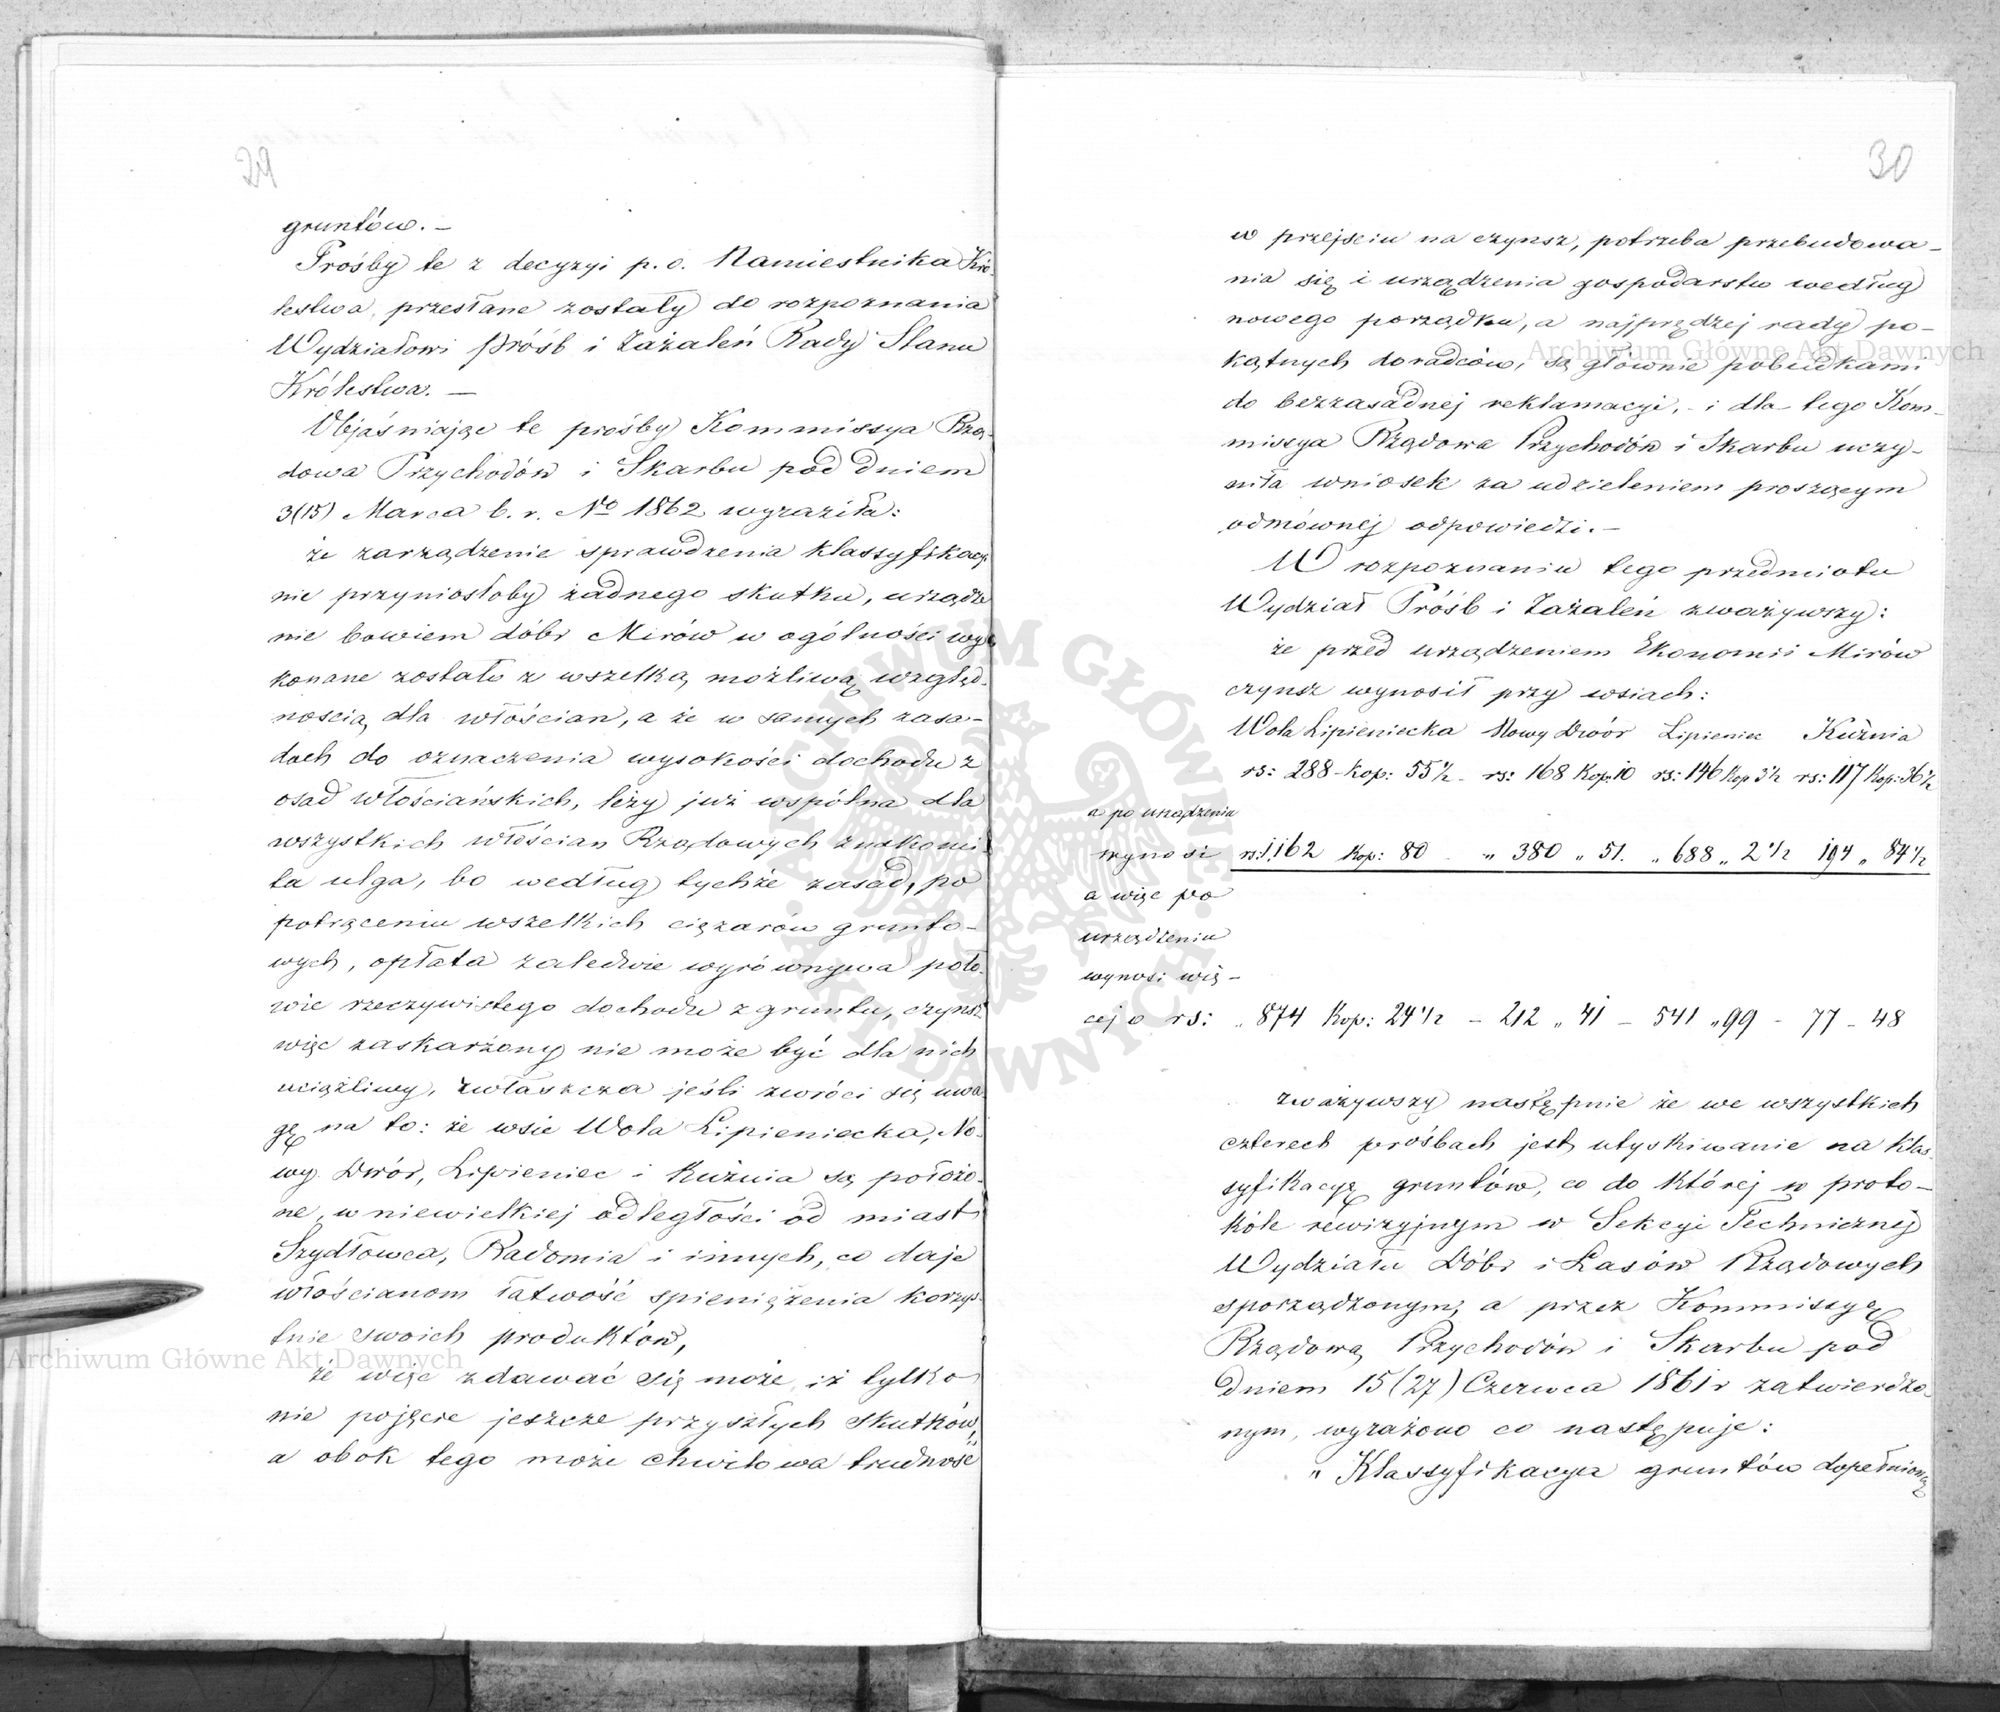 29
gruntów. –
Prośby te z decyzyi p. o. Namiestnika Kró-
lestwa, przesłane zostały do rozpoznania
Wydziałowi Próśb i Zażaleń Rady Stanu
Królestwa. –
Objaśniając te prośby Kommissya Rzą-
dowa Przychodów i Skarbu pod dniem
3(15) Marca b. r. No 1862 wyraziła:
że zarządzenie sprawdzenia klassyfikacyi
nie przyniosłoby żadnego skutku, urządze
nie bowiem dóbr Mirów w ogólności wy
konane zostało z wszelką możliwą względ-
nością dla włościan, a że w samych zasa-
dach do oznaczenia wysokości dochodu z
osad włościańskich, leży już wspólna dla
wszystkich włościan Rządowych znakomi-
ta ulga, bo według tychże zasad, po
potrąceniu wszelkich ciężarów grunto-
wych, opłata zaledwie wyrównywa poło-
wie rzeczywistego dochodu z gruntu, czynsz
więc zaskarżony nie może być dla nich
uciążliwy, zwłaszcza jeśli zwróci się uwa-
gę na to: że wsie Wola Lipieniecka, No-
wy Dwór, Lipieniec i Kuźnia są położo-
ne, w niewielkiej odległości od miast
Szydłowca, Radomia i innych, co daje
włościanom łatwość spieniężenia korzys-
tnie swoich produktów,
że więc zdawać się może, iż tylko
nie pojęcie jeszcze przyszłych skutków,
a obok tego może chwilowa trudność
30
w przejściu na czynsz, potrzeba przebudowa-
nia się i urządzenia gospodarstw według
nowego porządku, a najprędzej rady po-
kątnych doradców, są głównie pobudkami
do bezzasadnej reklamacyi, - i dla tego Kom-
missya Rządowa Przychodów i Skarbu uczy-
niła wniosek za udzieleniem proszącym
odmównej odpowiedzi. –
W rozpoznaniu tego przedmiotu
Wydział Próśb i Zażaleń zważywszy:
że przed urządzeniem Ekonomii Mirów
czynsz wynosił przy wsiach:
Wola Lipieniecka Nowy Dwór Lipieniec Kuźnia
rs: 288 - Kop: 55½ - rs: 168 Kop: 10 rs: 146 Kop 3½ rs: 117 Kop: 36½
a po urządzeniu
wynosi rs: 1,162 Kop: 80 - „ 380 „ 51. „ 688 „ 2½ 194 „ 84½
a więc po
urządzeniu
wynosi wię-
cej o rs: „ 874 Kop: 24½ - 212 „ 41 - 541 „ 99 - 77 - 48
zważywszy następnie że we wszystkich
czterech prośbach jest utyskiwanie na klas-
syfikacyę gruntów, co do której w proto-
kóle rewizyjnym w Sekcyi Technicznej
Wydziału Dóbr i Lasów Rządowych
sporządzonym, a przez Kommissyę
Rządową Przychodów i Skarbu pod
dniem 15(27) Czerwca 1861 r zatwierdzo-
nym, wyrażono co następuje:
„ Klassyfikacya gruntów dopełnioną
Archiwum Główne Akt Dawnych
Archiwum Główne Akt Dawnych
ARCHIWUM GŁÓWNE AKT DAWNYCH